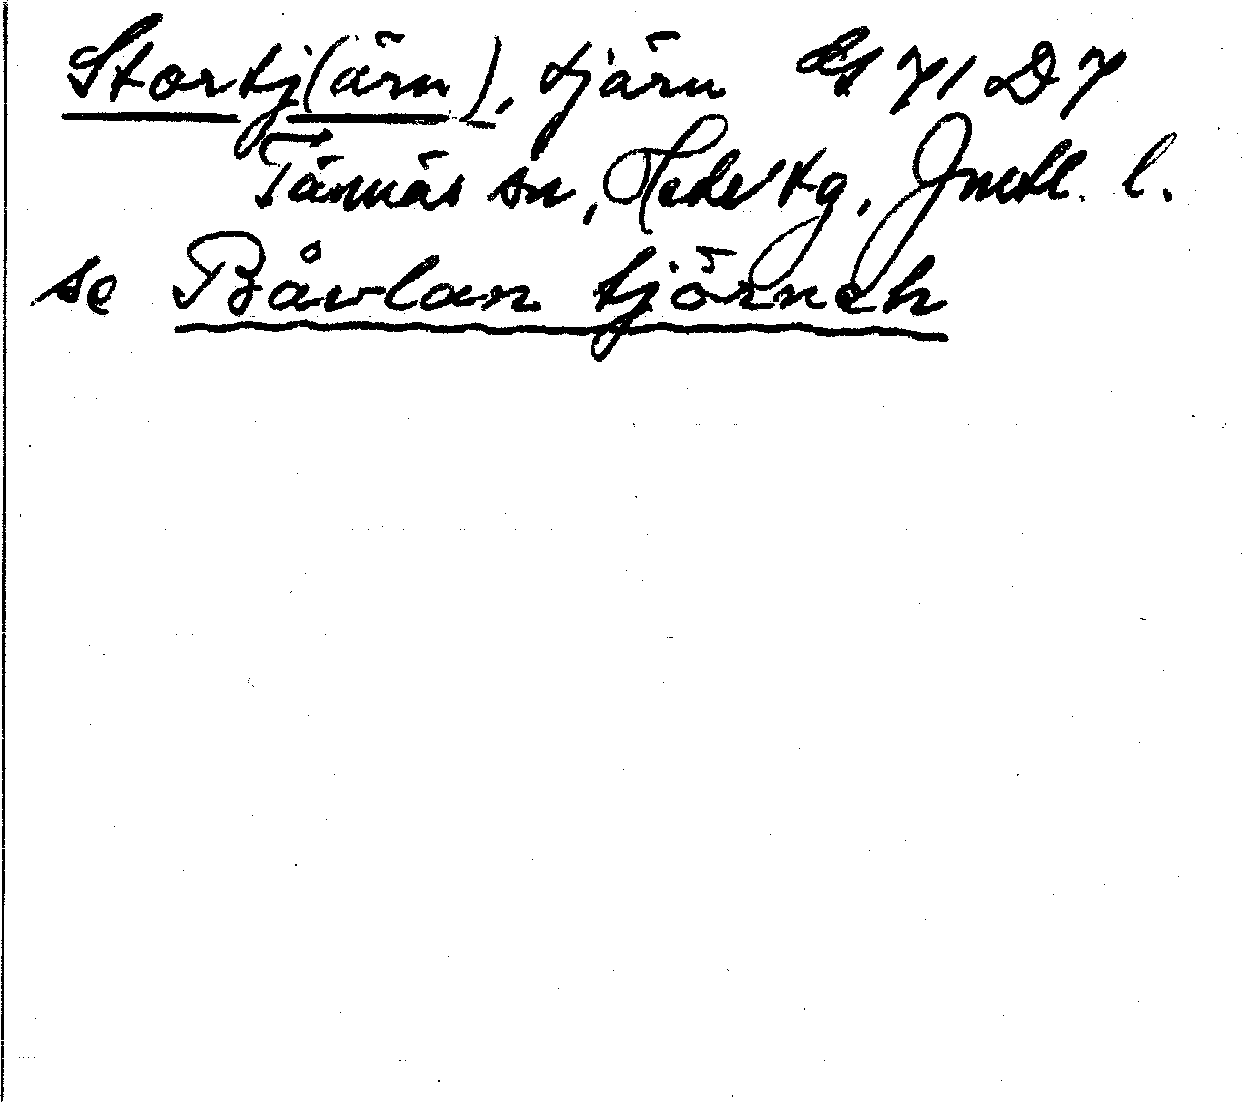 Stortj(ärn), tjärn GS 71 D 7
Tännäs sn, Hede tg, Jmtl. l.
se Båvlan tjörneh